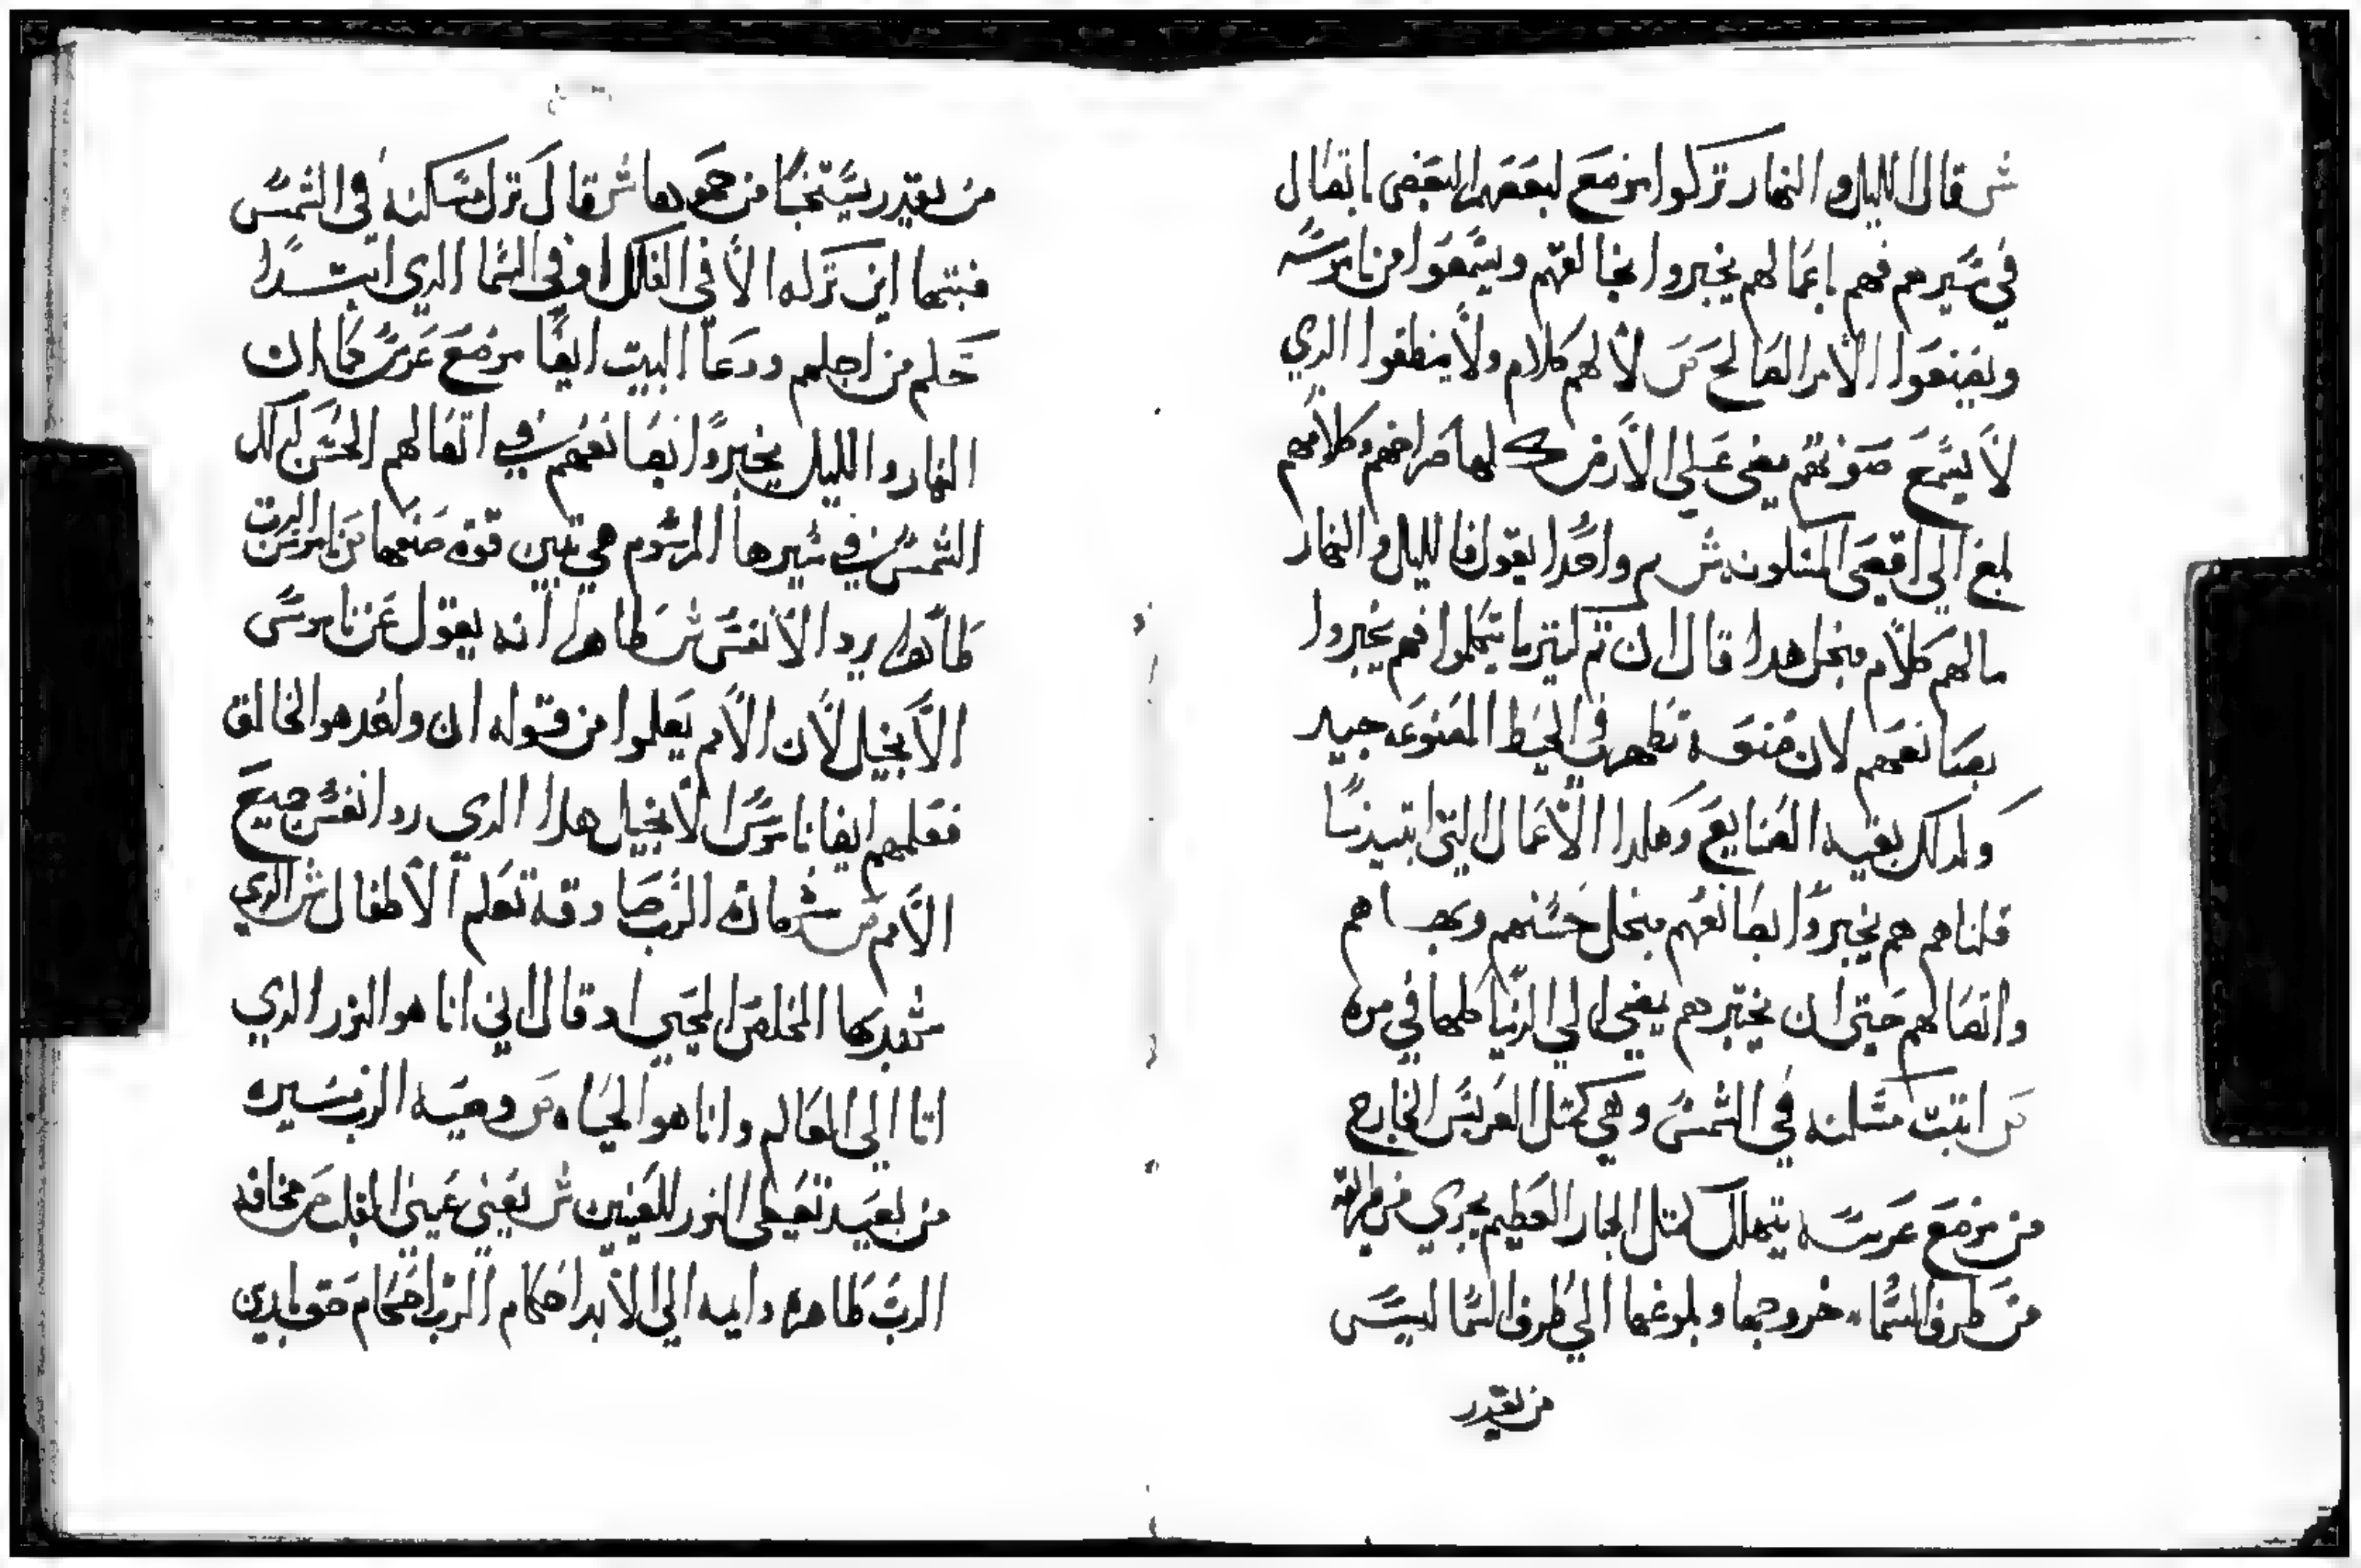 ش قال الليل والنهار تركوا موضع لبعضهم البعض باتصال
في مسيرهم فهم باعمالهم يخبروا بخالقهم ويسمعوا من ناموسه
ويصنعوا الامر الصالح ص لا لهم كلام ولا ينطقوا الدي
لا يسمع صوتهم يعني علي الارض كلها صراخهم وكلامهم
بلغ الي اقصى المسكونه ش واحدا يقول فا الليل والنهار
مالهم كلام منجل هدا قال ان تم ليتربا يتكلموا فهم يخبروا
بصانعهم لان صنعه تظهر في الحيط المصنوعه جيد
ولدلك بقيه الصنايع وهكدا الاعمال التي ابتيدنا
قلناهم هم يخبروا بصانعهم منجل حسنهم وبهاهم
واتصالهم حتى ان خبرهم يضي الي الدنيا كلها في مره
ص اتبت مسكنه في الشمس وهي كمتل العريس الخارج
من موضع عرسه يتهلل كمتل الجبار العظيم يجري في طريقه
من طرف السماء خروجها وبلوغها الي طرف السما ليس
من يقدر
من يقدر يستخبا من حموها ش قال ترك مسكنه في الشمس
فبتها اين تركه الا في الفلك او في السما الدي ابتدا
خلهم من اجلهم ودعا البيت ايضا موضع عرس كما ان
النهار والليل يخبروا بصانعهم في اتصالهم الحسن لدلك
الشمس في سيرها المرسوم هي تبين قوة صانعها ص ناموس الرب
طاهر يرد الانفس ش كما هدا انه يقول عن ناموس
الانجيل لان الامم يعلموا من قوله ان واحد هو الخالق
فعلمهم ايضا ناموس الانجيل هدا الدي رد انفس جميع
الامم ص شهادة الرب صادقة تعلم الاطفال ش الدي
شهد بها المخلص المحيي اد قال اني انا هو النور الدي
اتا الي العالم وانا هو الحياه ص وصية الرب مسيره
من بعيد تعطي النور للعينين ش يعني عيني القلب ص مخافة
الرب طاهره دايمه الي الابد احكام الرب احكام حق